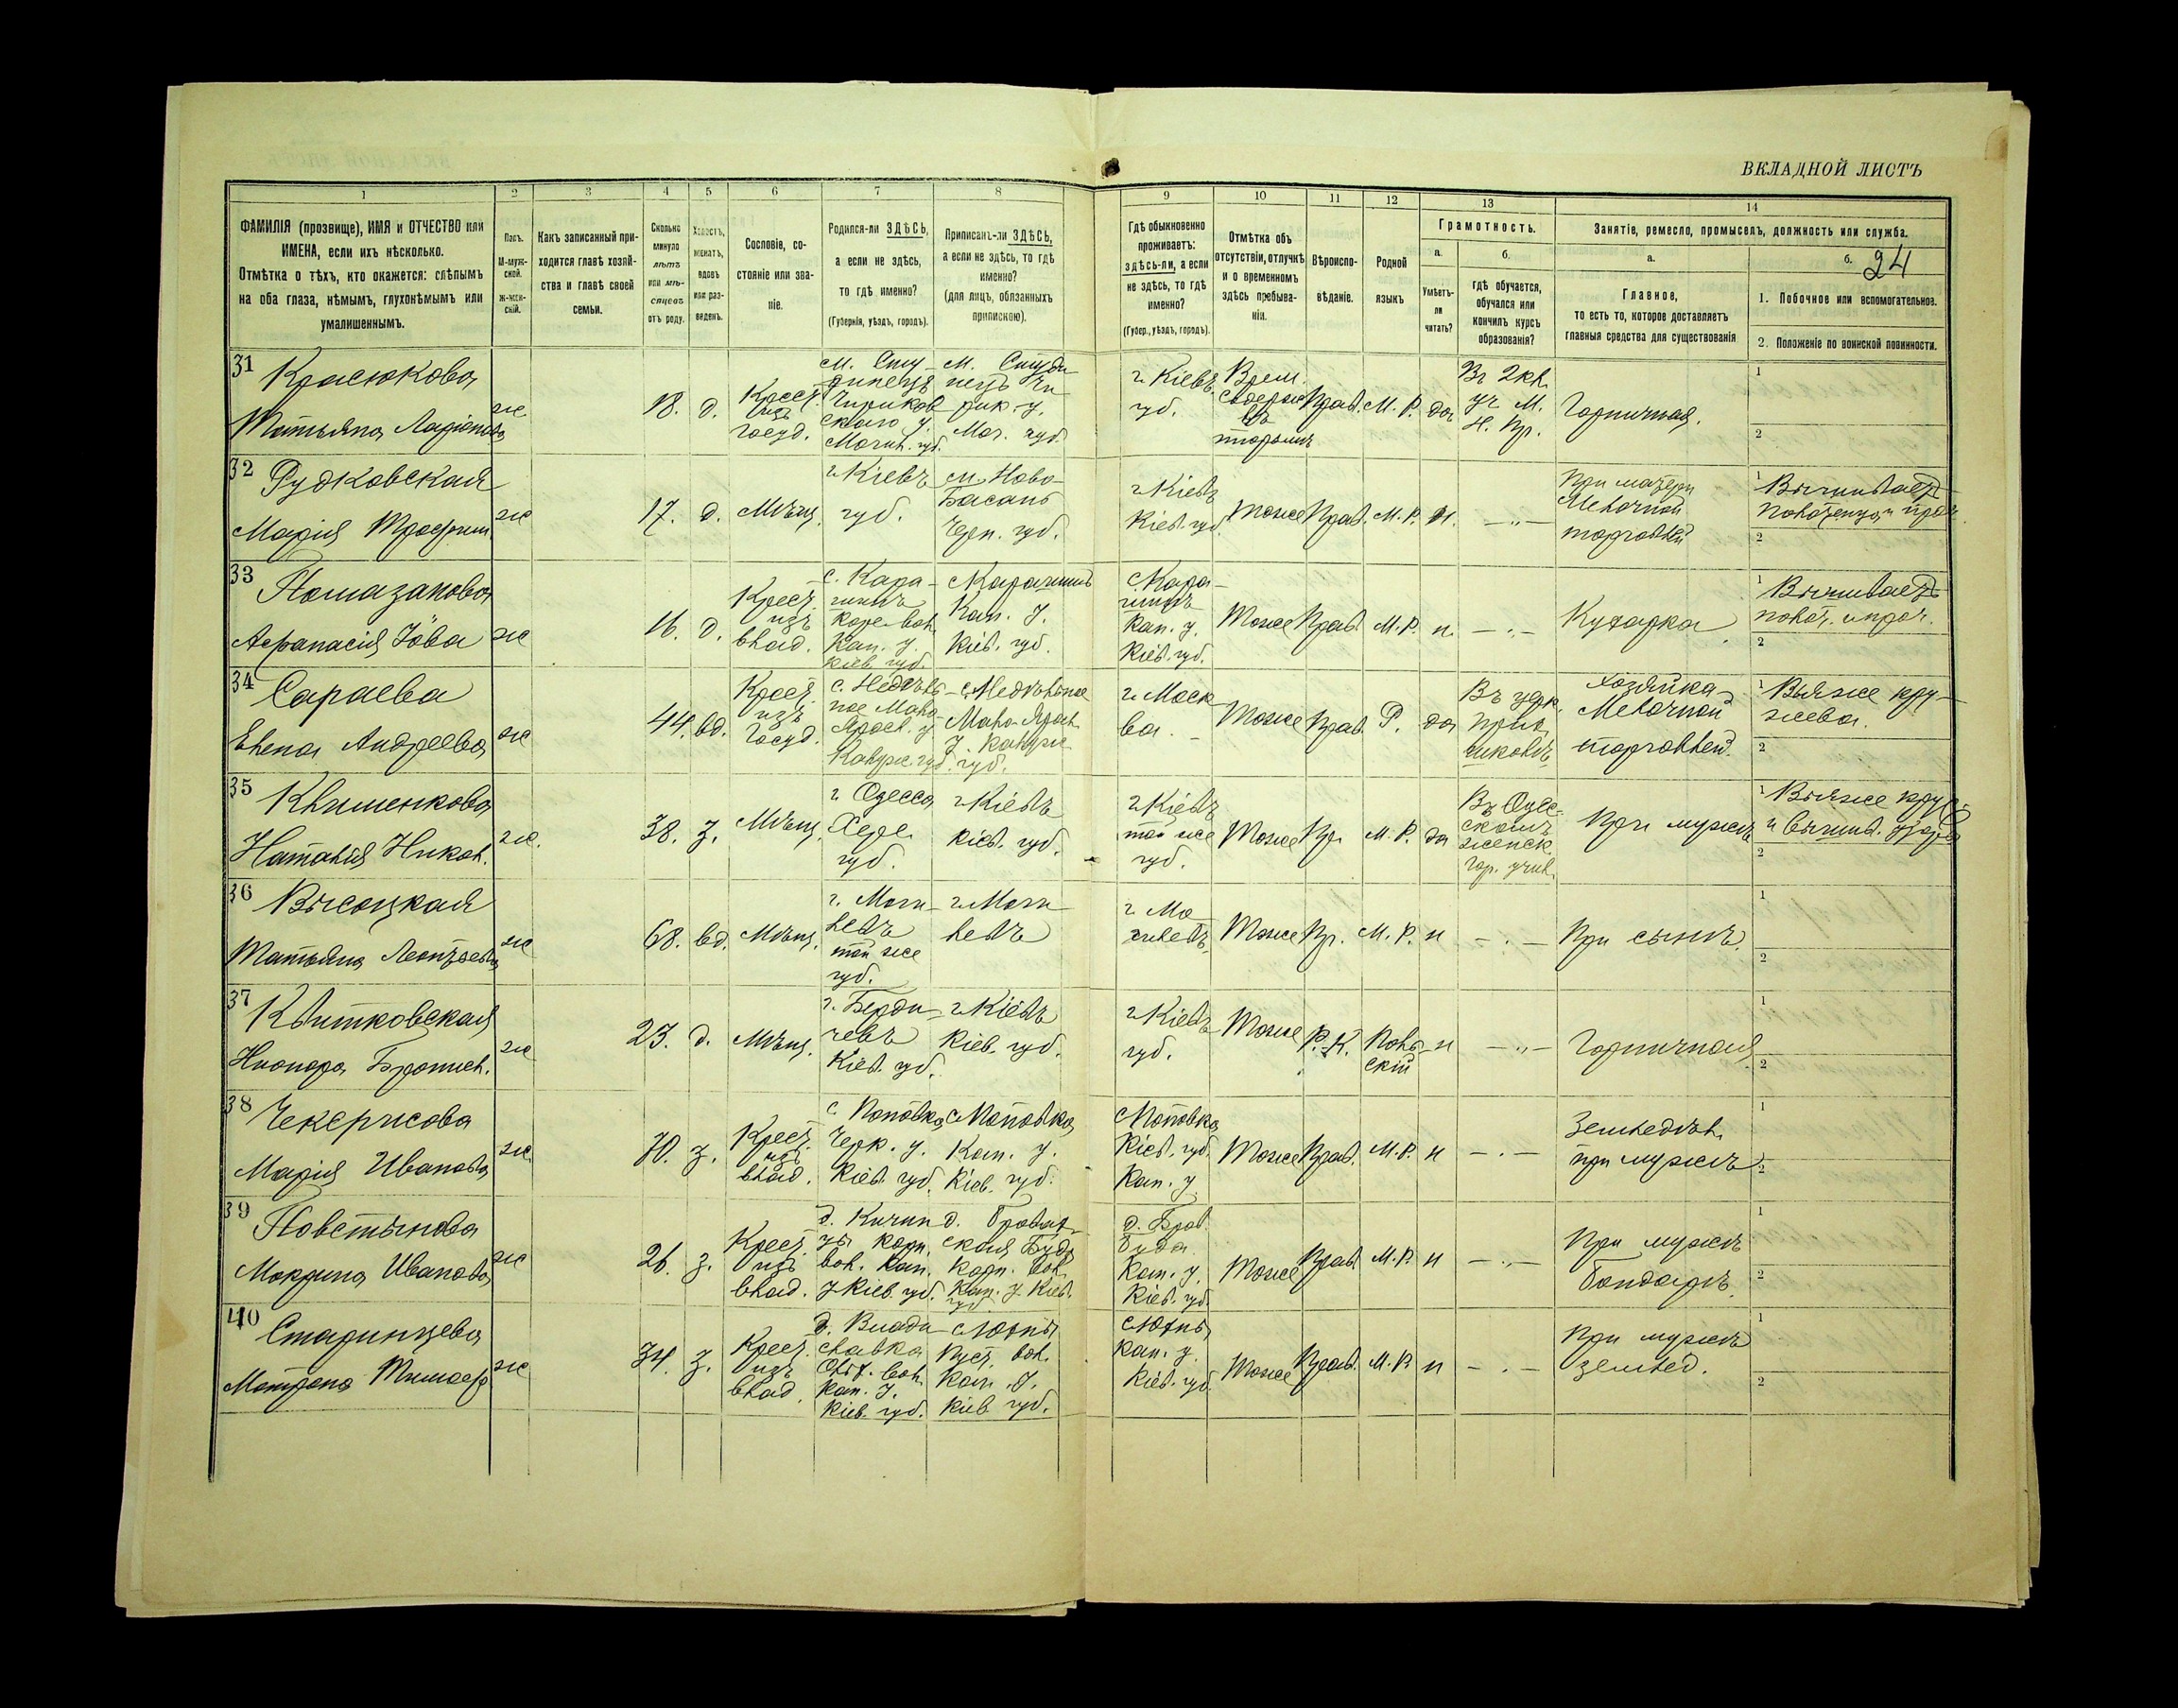 ВКЛАДНОЙ ЛИСТЪ
24
1 2 3 4 5 6 7 8 9 10 11 12 13 14
ФАМИЛІЯ (прозвище), ИМЯ и ОТЧЕСТВО или
ИМЕНА, если ихъ нѣсколько.
Отмѣтка о тѣхъ, кто окажется: слѣпымъ
на оба глаза, нѣмымъ, глухонѣмымъ или
умалишеннымъ.
Полъ.
М-муж-
ской.
ж-жен-
скій.
Какъ записанный при-
ходится главѣ хозяй-
ства и главѣ своей
семьи.
Сколько
минуло
лѣтъ
или мѣ-
сяцевъ
отъ роду.
Холостъ,
женатъ,
вдовъ
или раз-
веденъ.
Сословіе, со-
стояніе или зва-
ніе.
Родился-ли ЗДѢСЬ,
а если не здѣсь,
то гдѣ именно?
(Губернія, уѣздъ, городъ).
Приписанъ-ли ЗДѢСЬ,
а если не здѣсь, то гдѣ
именно?
(для лицъ, обязанныхъ
припискою).
Гдѣ обыкновенно
проживаетъ:
здѣсь-ли, а если
не здѣсь, то гдѣ
именно?
(Губер., уѣздъ, городъ).
Отмѣтка объ
отсутствіи, отлучкѣ
и о временномъ
здѣсь пребыва-
ніи.
Вѣроиспо-
вѣданіе.
Родной
языкъ
Грамотность.
а.
Умѣетъ-
ли
читать?
б.
гдѣ обучается,
обучался или
кончилъ курсъ
образованія?
Занятіе, ремесло, промыселъ, должность или служба.
а.
Главное,
то есть то, которое доставляетъ
главныя средства для существованія
б.
1. Побочное или вспомогательное.
2. Положеніе по воинской повинности.
31
Красюкова
Татьяна Ларіонова
ж.
18.
д.
Крест.
изъ
госуд.
Могил. губ.
Мог. губ.
г. Кіевъ
губ.
Врем.
Прав.
М. Р.
да
Въ 2кл.
уч. М.
Н. Пр.
Горничная.
1
2
32
Рудковская
Марія Трофим.
ж
17.
д.
Мѣщ.
г Кіевъ
губ.
м. Ново-
Басань
Черн. губ.
г Кіевъ
Кіев. губ.
Тоже
Прав.
М. Р.
н.
— „ —
При матери
Мелочной
торговлей
1 Вышиваетъ
полотенца и проч
2
33
Помазанова
Афанасія Іова
ж
16.
д.
Крест.
изъ
влад.
с. Кара-
шинъ
Кан. у.
Кіев. губ.
с Карашинъ
Кан. у.
Кіев. губ.
с Кара-
шинъ
Кан. у.
Кіев. губ.
Тоже
Прав.
М. Р.
н.
— „ —
Кухарка.
1 Вышиваетъ
полот. и проч.
2
34
Сараева
Елена Андреева
ж
44.
вд.
Крест.
изъ
Госуд.
с. Недѣль-
ное Мало-
Яросл. у
Калуж. губ.
с Недѣльное
Мало-Яросл.
у. Калуж.
губ.
г Моск-
ва.
Тоже
Прав.
Р.
да
Хозяйка
Мелочной
торговлей.
1 Вяжетъ кру-
жева.
2
35
Клименкова
Наталія Никол.
ж.
38.
з.
Мѣщ.
г Одесса
Херс.
губ.
г Кіевъ
Кіев. губ.
г Кіевъ
той же
губ.
Тоже
Пр
М. Р.
да
Въ Одес-
скомъ
женск.
гор. учил.
При мужѣ
2
36
Высоцкая
Татьяна Леонтьева
ж
68.
вд.
Мѣщ.
г. Моги-
левъ
той же
губ.
г Моги-
левъ
г Мо-
гилевъ
Тоже
Пр.
М. Р.
н
— „ —
При сынѣ.
1
2
37
Квитковская
Гонора Бронисл.
ж
23.
д.
Мѣщ.
г. Берди-
чевъ
Кіев. губ.
г Кіевъ
Кіев. губ.
г Кіевъ
губ.
Тоже
Р. К.
Поль-
скій
н
— „ —
Горничная
1
2
38
Чекерисова
Марія Иванова
ж
70.
з.
Крест.
изъ
влад.
с. Поповка
Черк. у.
Кіев. губ.
с Поповка
Кан. у.
Кіев. губ.
с Поповка
Кіев. губ.
Кан. у
Тоже
Прав.
М. Р.
н
— „ —
Земледѣл.
при мужѣ
1
2
39
Повстынова
Мокрина Иванова
ж
26.
з.
Крест.
изъ
влад.
вол. Кан.
у Кіев. губ.
д. Бровах-
ская Буда
Корн. вол.
Кан. у. Кіев.
губ
д. Бров.
Буда
Кан. у.
Кіев. губ.
Тоже
Прав.
М. Р.
н
— „ —
При мужѣ
бондарѣ.
1
2
40
Старинцева
Матрона Тимоф
ж
34.
з.
Крест.
изъ
влад.
д. Влади-
славка
Кан. у.
Кіев. губ.
Пуст. вол.
Кан. у.
Кіев губ.
Кан. у.
Кіев. губ.
Тоже
Прав.
М. Р
н
— „ —
При мужѣ
землед.
1
2